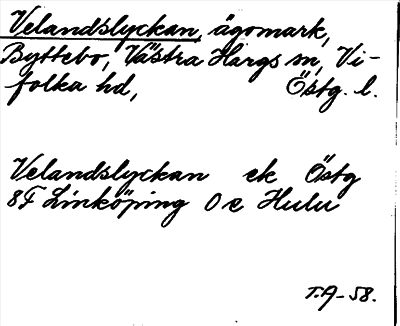 Velandslyckan, ägomark,
Byttebo, Västra Hargs sn, Vi-
folka hd, Östg. l.
Velandslyckan ek Östg
8F Linköping 0 e Hulu
T.A-58.